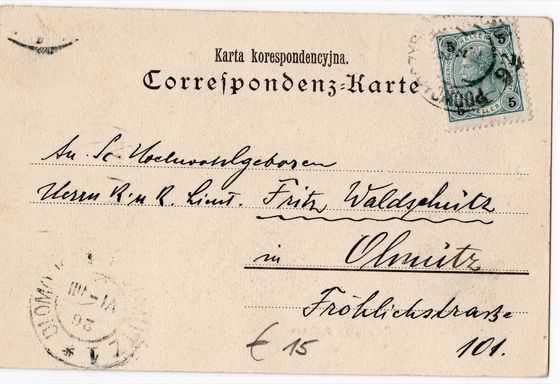 Karta korespondencyjna.
Correspondenz-Karte
5 5
5 5
HELLER
PODWOŁOCZYSKA
An Sr. Hochwohlgeboren
Herrn K. u. K. Lieut. Fritz Waldschütz
in Olmütz
Fröhlichstrasse
101.
OLMÜTZ 1
VI-VIII
26
€ 15